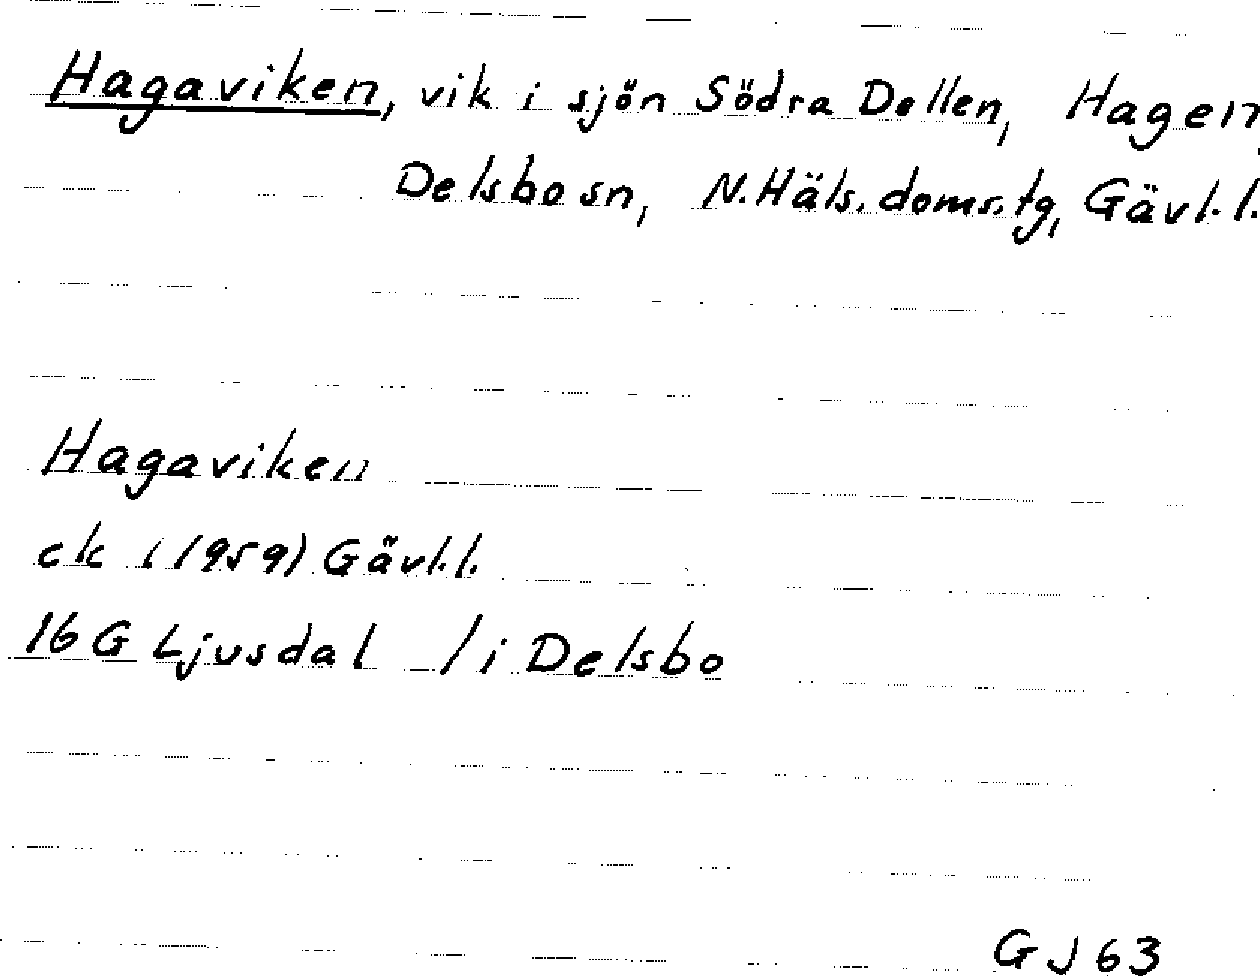 Hagaviken, vik i sjön Södra Dellen, Hagen,
Delsbo sn, N.Häls.doms.tg, Gävl.l.
Hagaviken
ek (1959) Gävl.l.
16 G Ljusdal / i Delsbo
GJ 63